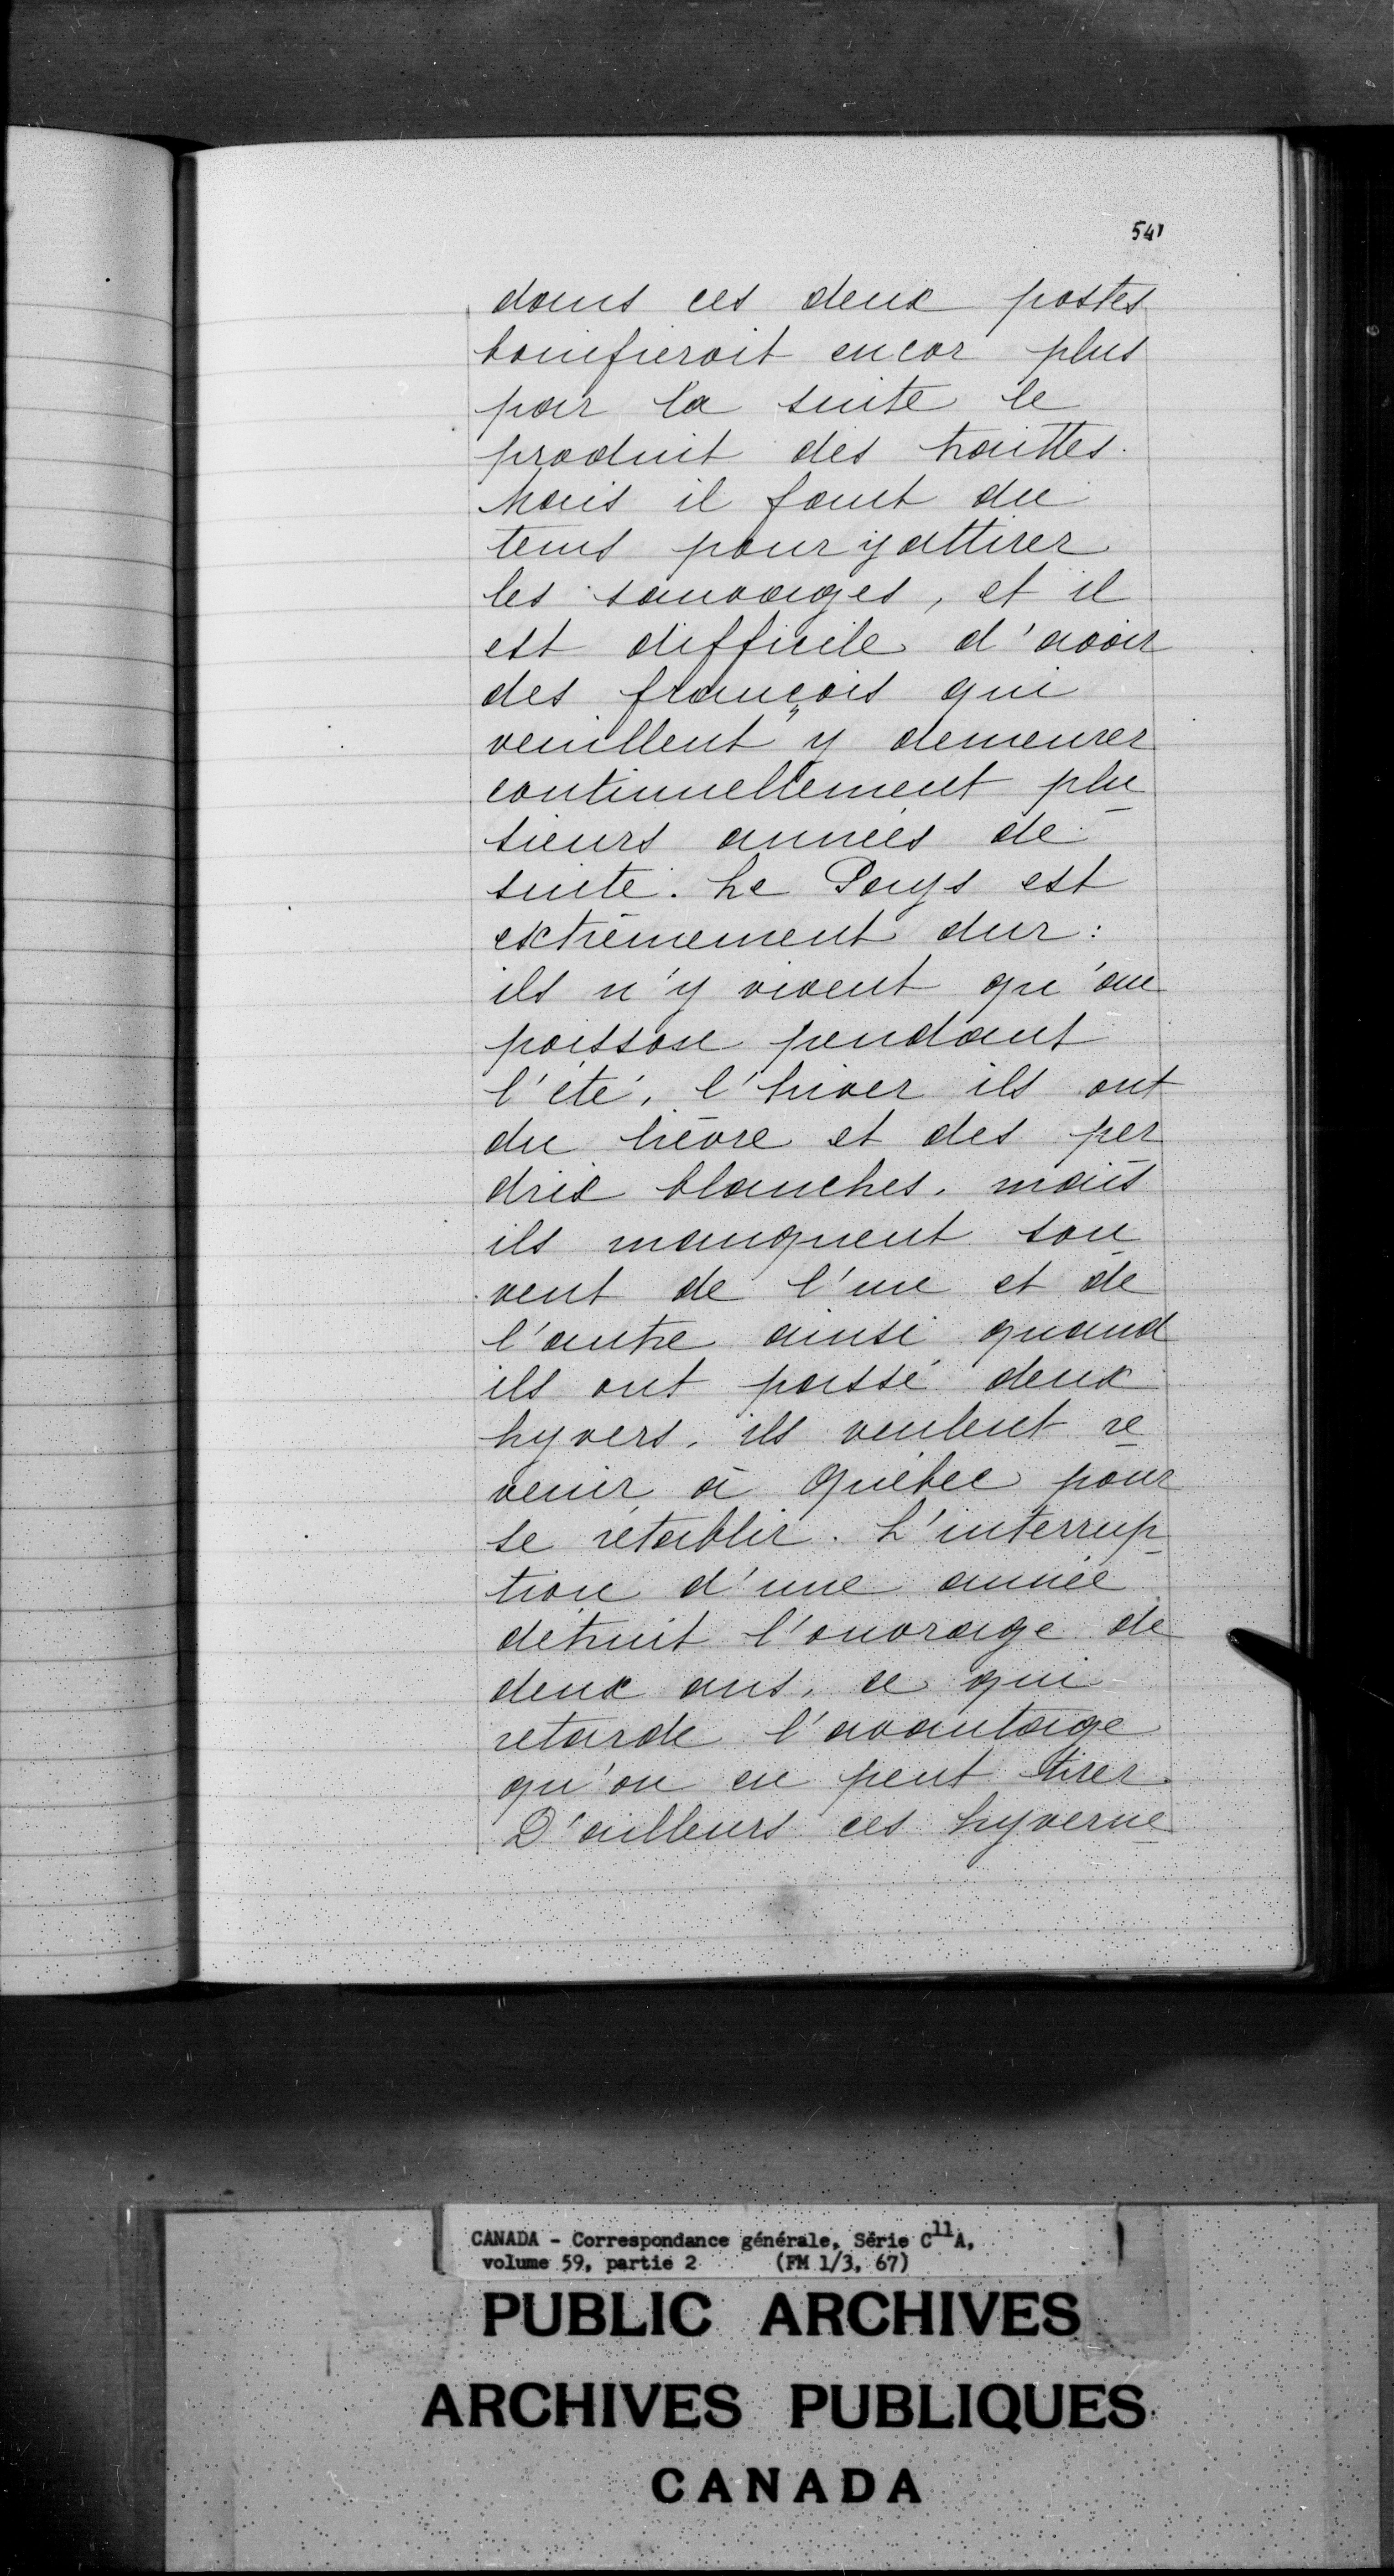 541
dans ces deux postes
bonifieroit encor plus
par la suite le
produit des traittes.
Mais il faut du
tems pour y attirer
les sauvages, et il
est difficile d'avoir
des françois qui
veuillent y demeurer
continuellement plu
sieurs années de
suite. Le Pays est
extrêmement dur :
ils n'y vivent qu'au
poisson pendant
l'été, l'hiver ils ont
du lièvre et des per
drix blanches, mais
ils manquent sou
vent de l'un et de
l'autre ainsi quand
ils ont passé deux
hyvers, ils veulent re
venir à Québec pour
se rétablir. L'interrup
tion d'une année
détruit l'ouvrage de
deux ans, ce qui
retarde l'avantage
qu'on en peut tirer.
D'ailleurs ces hyverne
CANADA - Correspondance générale, Série C11A,
volume 59, partie 2 (FM 1/3, 67)
PUBLIC ARCHIVES
ARCHIVES PUBLIQUES
CANADA